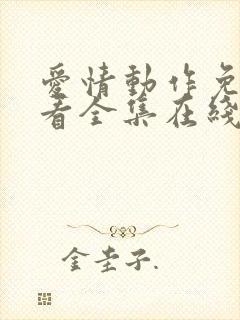 愛情動作免
看全集在綫
金圭子.